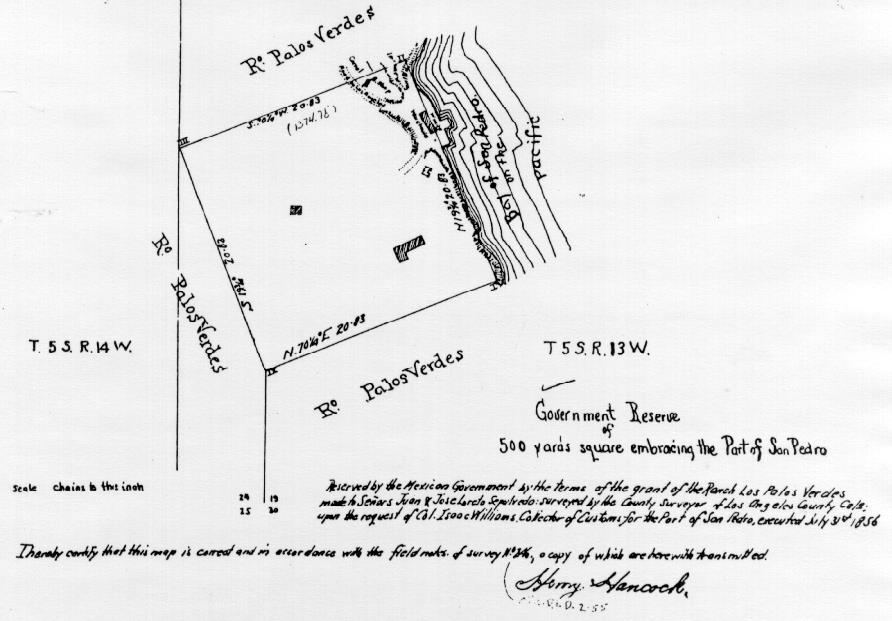 Rº Palos Verdes
S. 70¼° W. 20.83
(1374.78')
Bay of San Pedro.
on the
Pacific
N 19¾° 20.83
Rº
Palos Verdes
S 19¾° 20.83
N. 70¼° E 20.83
T. 5 S. R. 14 W.
T 5 S. R. 13 W.
Rº Palos Verdes
Government Reserve
of
500 yards square embracing the Port of San Pedro
Scale chains to this inch
24 19
25 30
Reserved by the Mexican Government by the terms of the grant of the Ranch Los Palos Verdes
made to Señors Juan & Jose Loreto Sepulveda: surveyed by the County Surveyor of Los Angeles County Cala;
upon the request of Col. Isaac Williams, Collector of Customs for the Port of San Pedro, executed July 31st 1856
I hereby certify that this map is correct and in accordance with the field notes of survey Nº, a copy of which are herewith transmitted.
Henry Hancock.
2-55